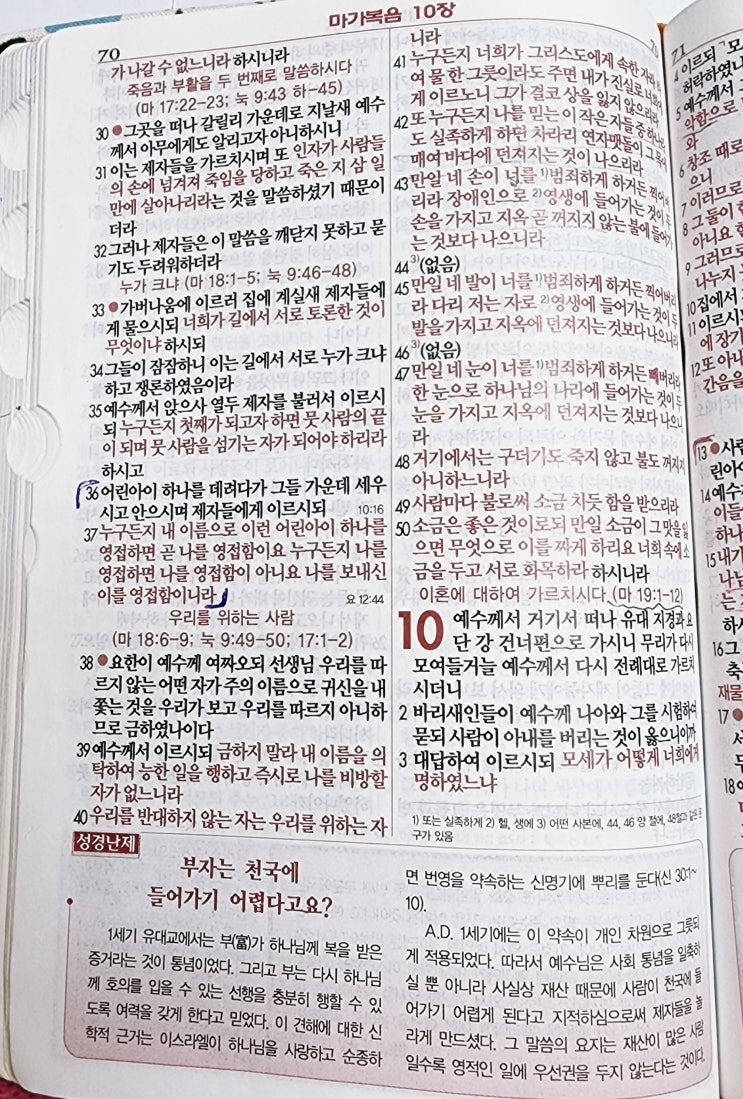 마가복음 10장
70
가 나갈 수 없느니라 하시니라
죽음과 부활을 두 번째로 말씀하시다
(마 17:22-23; 눅 9:43 하-45)
30 ●그곳을 떠나 갈릴리 가운데로 지날새 예수
께서 아무에게도 알리고자 아니하시니
31 이는 제자들을 가르치시며 또 인자가 사람들
의 손에 넘겨져 죽임을 당하고 죽은 지 삼 일
만에 살아나리라는 것을 말씀하셨기 때문이
더라
32 그러나 제자들은 이 말씀을 깨닫지 못하고 묻
기도 두려워하더라
누가 크냐 (마 18:1-5; 눅 9:46-48)
33 ●가버나움에 이르러 집에 계실새 제자들에
게 물으시되 너희가 길에서 서로 토론한 것이
무엇이냐 하시되
34 그들이 잠잠하니 이는 길에서 서로 누가 크냐
하고 쟁론하였음이라
35 예수께서 앉으사 열두 제자를 불러서 이르시
되 누구든지 첫째가 되고자 하면 뭇 사람의 끝
이 되며 뭇 사람을 섬기는 자가 되어야 하리라
하시고
36 어린아이 하나를 데려다가 그들 가운데 세우
시고 안으시며 제자들에게 이르시되 10:16
37 누구든지 내 이름으로 이런 어린아이 하나를
영접하면 곧 나를 영접함이요 누구든지 나를
영접하면 나를 영접함이 아니요 나를 보내신
이를 영접함이니라 요 12:44
우리를 위하는 사람
(마 18:6-9; 눅 9:49-50; 17:1-2)
38 ●요한이 예수께 여짜오되 선생님 우리를 따
르지 않는 어떤 자가 주의 이름으로 귀신을 내
쫓는 것을 우리가 보고 우리를 따르지 아니하
므로 금하였나이다
39 예수께서 이르시되 금하지 말라 내 이름을 의
탁하여 능한 일을 행하고 즉시로 나를 비방할
자가 없느니라
40 우리를 반대하지 않는 자는 우리를 위하는 자
니라
41 누구든지 너희가 그리스도에게 속한 자라 하
여 물 한 그릇이라도 주면 내가 진실로 너희에
게 이르노니 그가 결코 상을 잃지 않으리라
42 또 누구든지 나를 믿는 이 작은 자들 중 하나라
도 실족하게 하면 차라리 연자맷돌이 그 목에
매여 바다에 던져지는 것이 나으리라
43 만일 네 손이 너를 1)범죄하게 하거든 찍어버
리라 장애인으로 2)영생에 들어가는 것이 두
손을 가지고 지옥 곧 꺼지지 않는 불에 들어가
는 것보다 나으니라
44 3)(없음)
45 만일 네 발이 너를 1)범죄하게 하거든 찍어버리
라 다리 저는 자로 2)영생에 들어가는 것이 두
발을 가지고 지옥에 던져지는 것보다 나으니라
46 3)(없음)
47 만일 네 눈이 너를 1)범죄하게 하거든 빼버리라
한 눈으로 하나님의 나라에 들어가는 것이 두
눈을 가지고 지옥에 던져지는 것보다 나으니
라
48 거기에서는 구더기도 죽지 않고 불도 꺼지지
아니하느니라
49 사람마다 불로써 소금 치듯 함을 받으리라
50 소금은 좋은 것이로되 만일 소금이 그 맛을 잃
으면 무엇으로 이를 짜게 하리요 너희 속에 소
금을 두고 서로 화목하라 하시니라
이혼에 대하여 가르치시다 (마 19:1-12)
10 예수께서 거기서 떠나 유대 지경과 요
단 강 건너편으로 가시니 무리가 다시
모여들거늘 예수께서 다시 전례대로 가르치
시더니
2 바리새인들이 예수께 나아와 그를 시험하여
묻되 사람이 아내를 버리는 것이 옳으니이까
3 대답하여 이르시되 모세가 어떻게 너희에게
명하였느냐
1) 또는 실족하게 2) 헬, 생에 3) 어떤 사본에, 44, 46 양 절에, 48절과 같은 문
구가 있음
성경난제
부자는 천국에
들어가기 어렵다고요?
1세기 유대교에서는 부(富)가 하나님께 복을 받은
증거라는 것이 통념이었다. 그리고 부는 다시 하나님
께 호의를 입을 수 있는 선행을 충분히 행할 수 있
도록 여력을 갖게 한다고 믿었다. 이 견해에 대한 신
학적 근거는 이스라엘이 하나님을 사랑하고 순종하
면 번영을 약속하는 신명기에 뿌리를 둔다(신 30:1~
10).
A.D. 1세기에는 이 약속이 개인 차원으로 그릇되
게 적용되었다. 따라서 예수님은 사회 통념을 일축하
실 뿐 아니라 사실상 재산 때문에 사람이 천국에 들
어가기 어렵게 된다고 지적하심으로써 제자들을 놀
라게 만드셨다. 그 말씀의 요지는 재산이 많은 사람
일수록 영적인 일에 우선권을 두지 않는다는 것이다.
71
4 이르되
허락하였
5 예수께서
와
6 창조 때로
으니
7 이러므로
8 그 둘이 한
아니요 한
9 그러므로
나누지
10 집에서
11 이르시되
에 장가
12 또 아내
간음을
13 ●사람
린아이
14 예수
이들
하나
15 내가
16 그
축
재물
17 ●
18 이